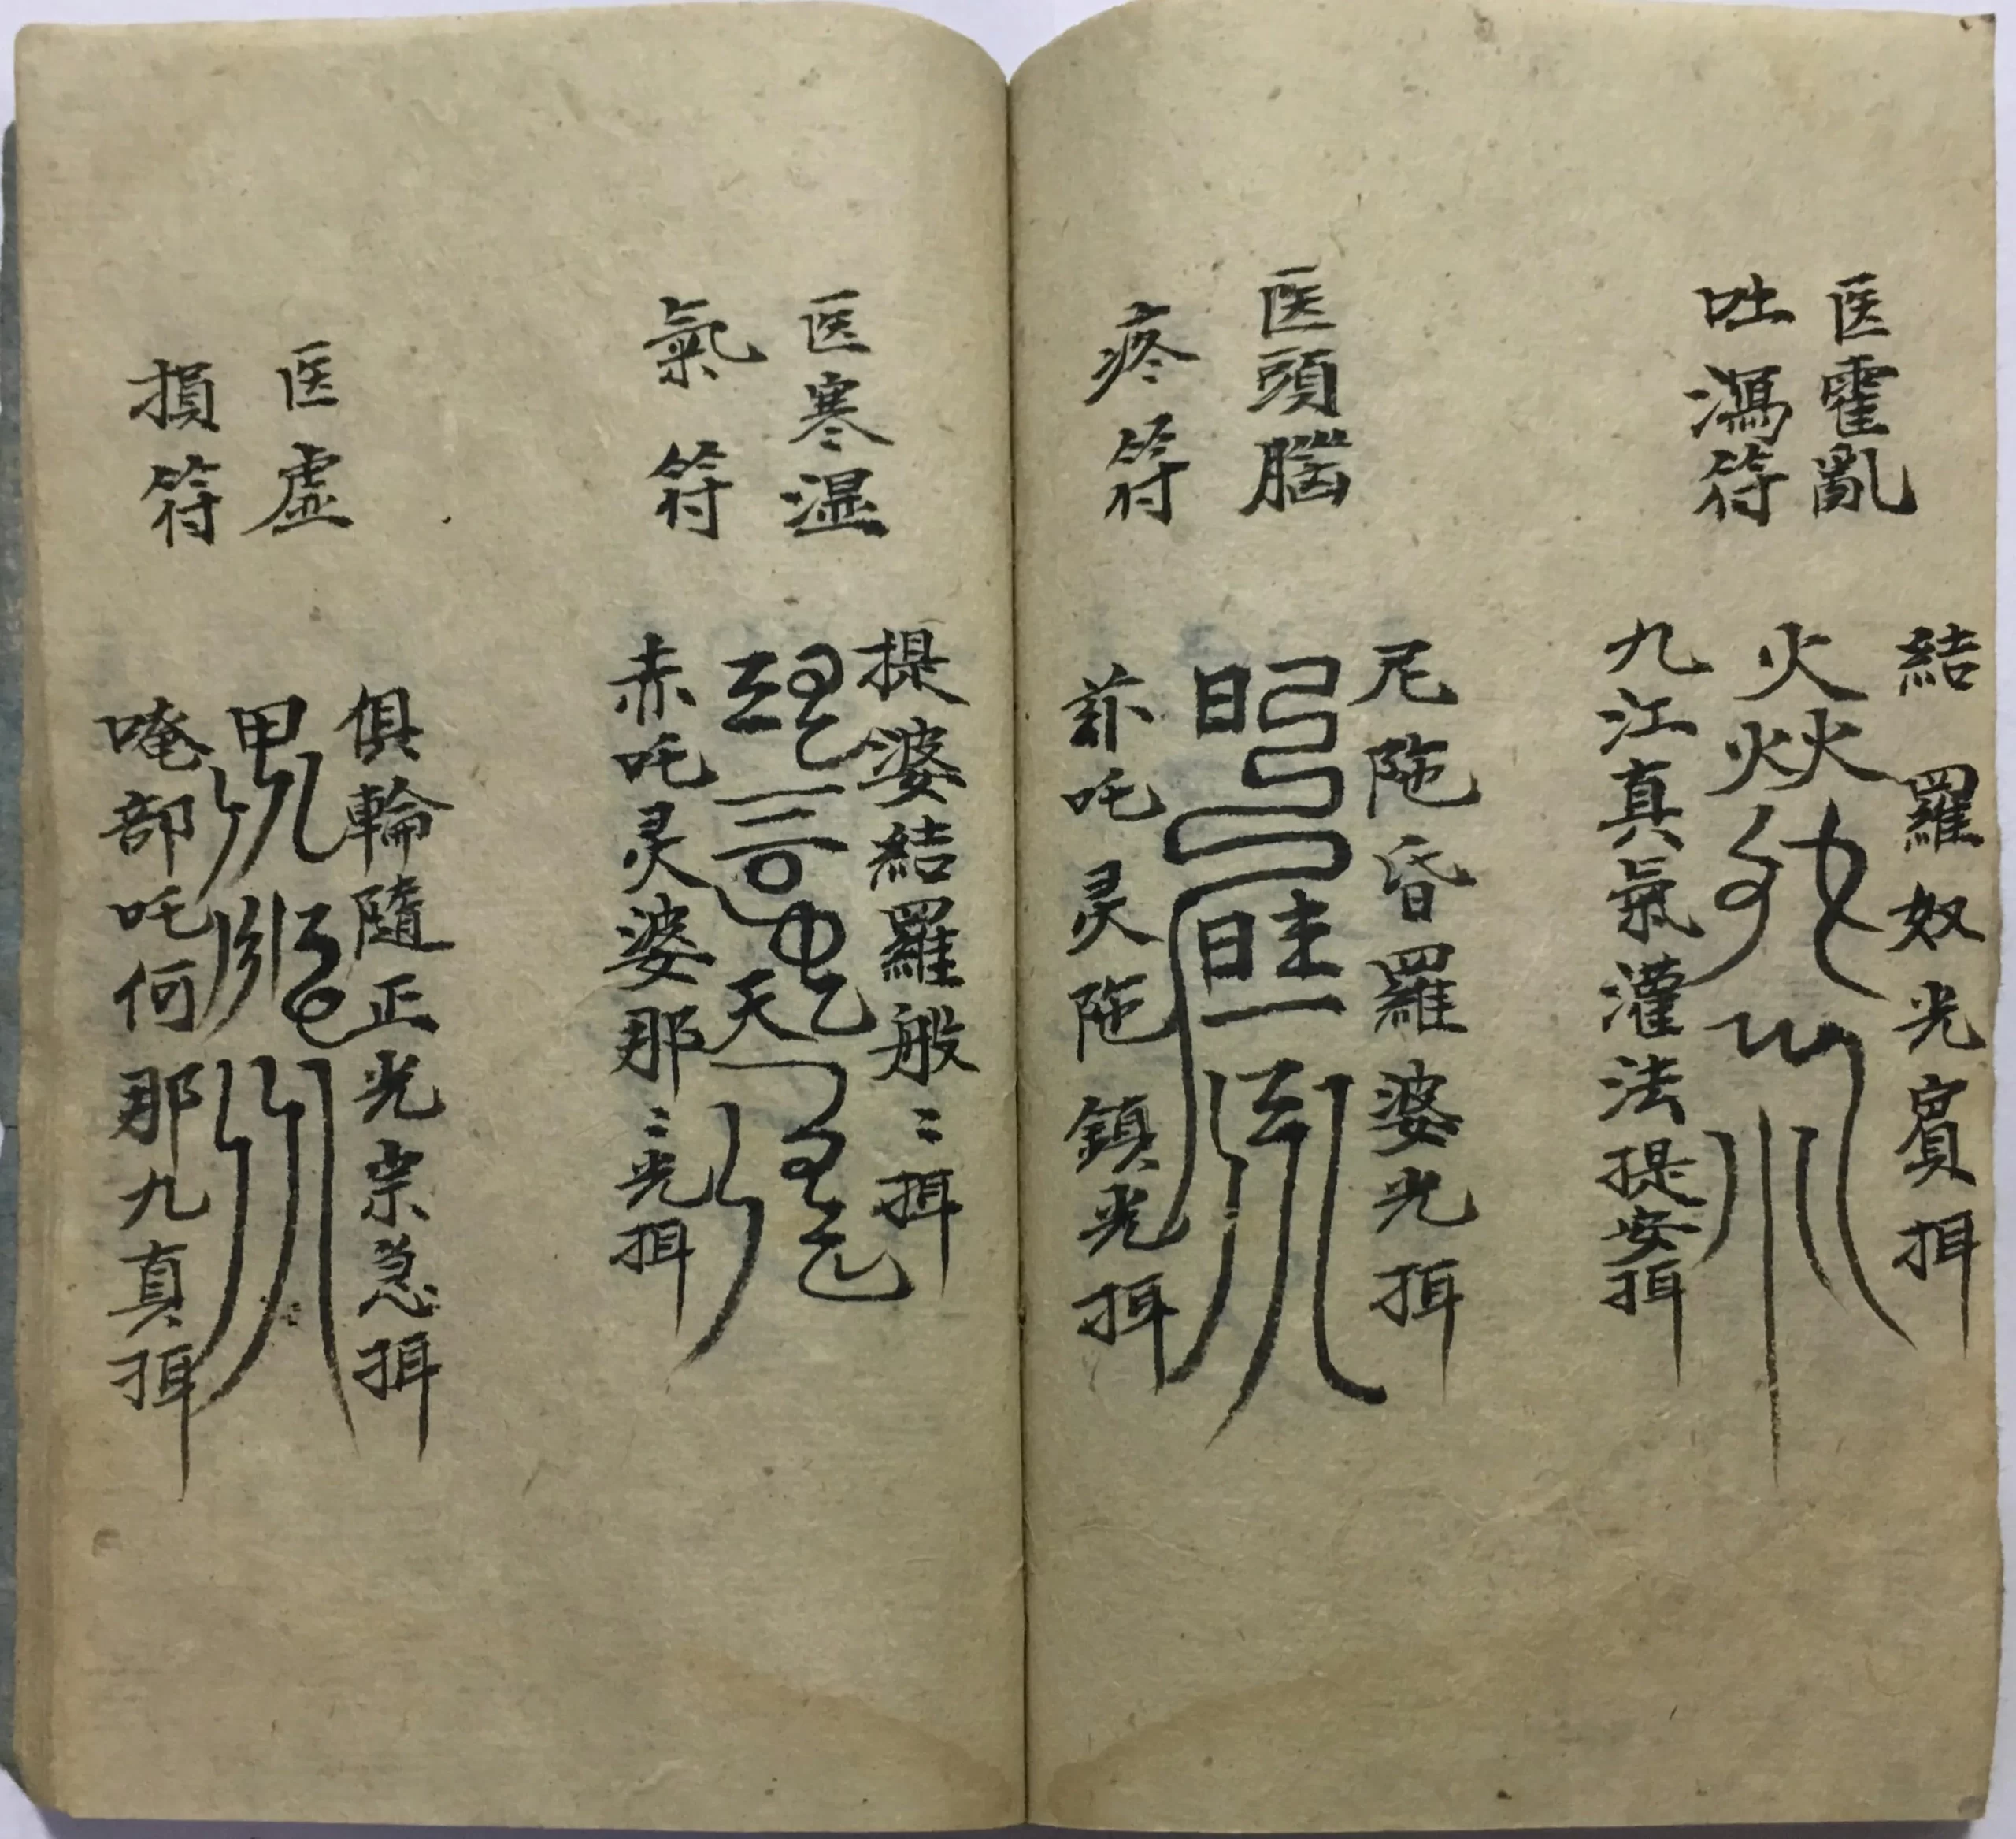 医霍亂
吐瀉符
結羅奴光賔揖
九江真氣灌法提安揖
医頭腦
疼符
尼陁昏羅婆光揖
吒灵陁鎮光揖
医寒湿
氣符
提婆結羅般〻揖
赤吒灵婆那〻光揖
医虚
損符
俱輪隨正光宗急揖
唵部吒何那九真揖